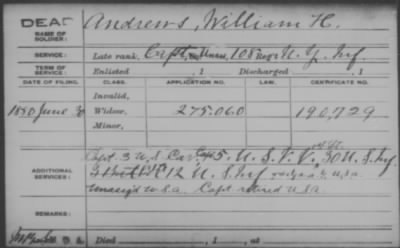 DEAD
NAME OF SOLDIER: Andrews, William H.
SERVICE: Late rank, Capt, 108 Reg't N. Y. Inf
TERM OF SERVICE: Enlisted , 1 Discharged , 1
DATE OF FILING. CLASS. APPLICATION NO. LAW. CERTIFICATE NO.
Invalid,
1880 June Widow, 275.060 190,729
Minor,
ADDITIONAL SERVICES:
Capt. 3 U.S. Cav. 45. U. S. V. V. 30 U.S. Inf
12 U. S. Inf U.S.A.
Unassig'd U.S.A. Capt retired U.S.A.
REMARKS:
Died , 1 , at